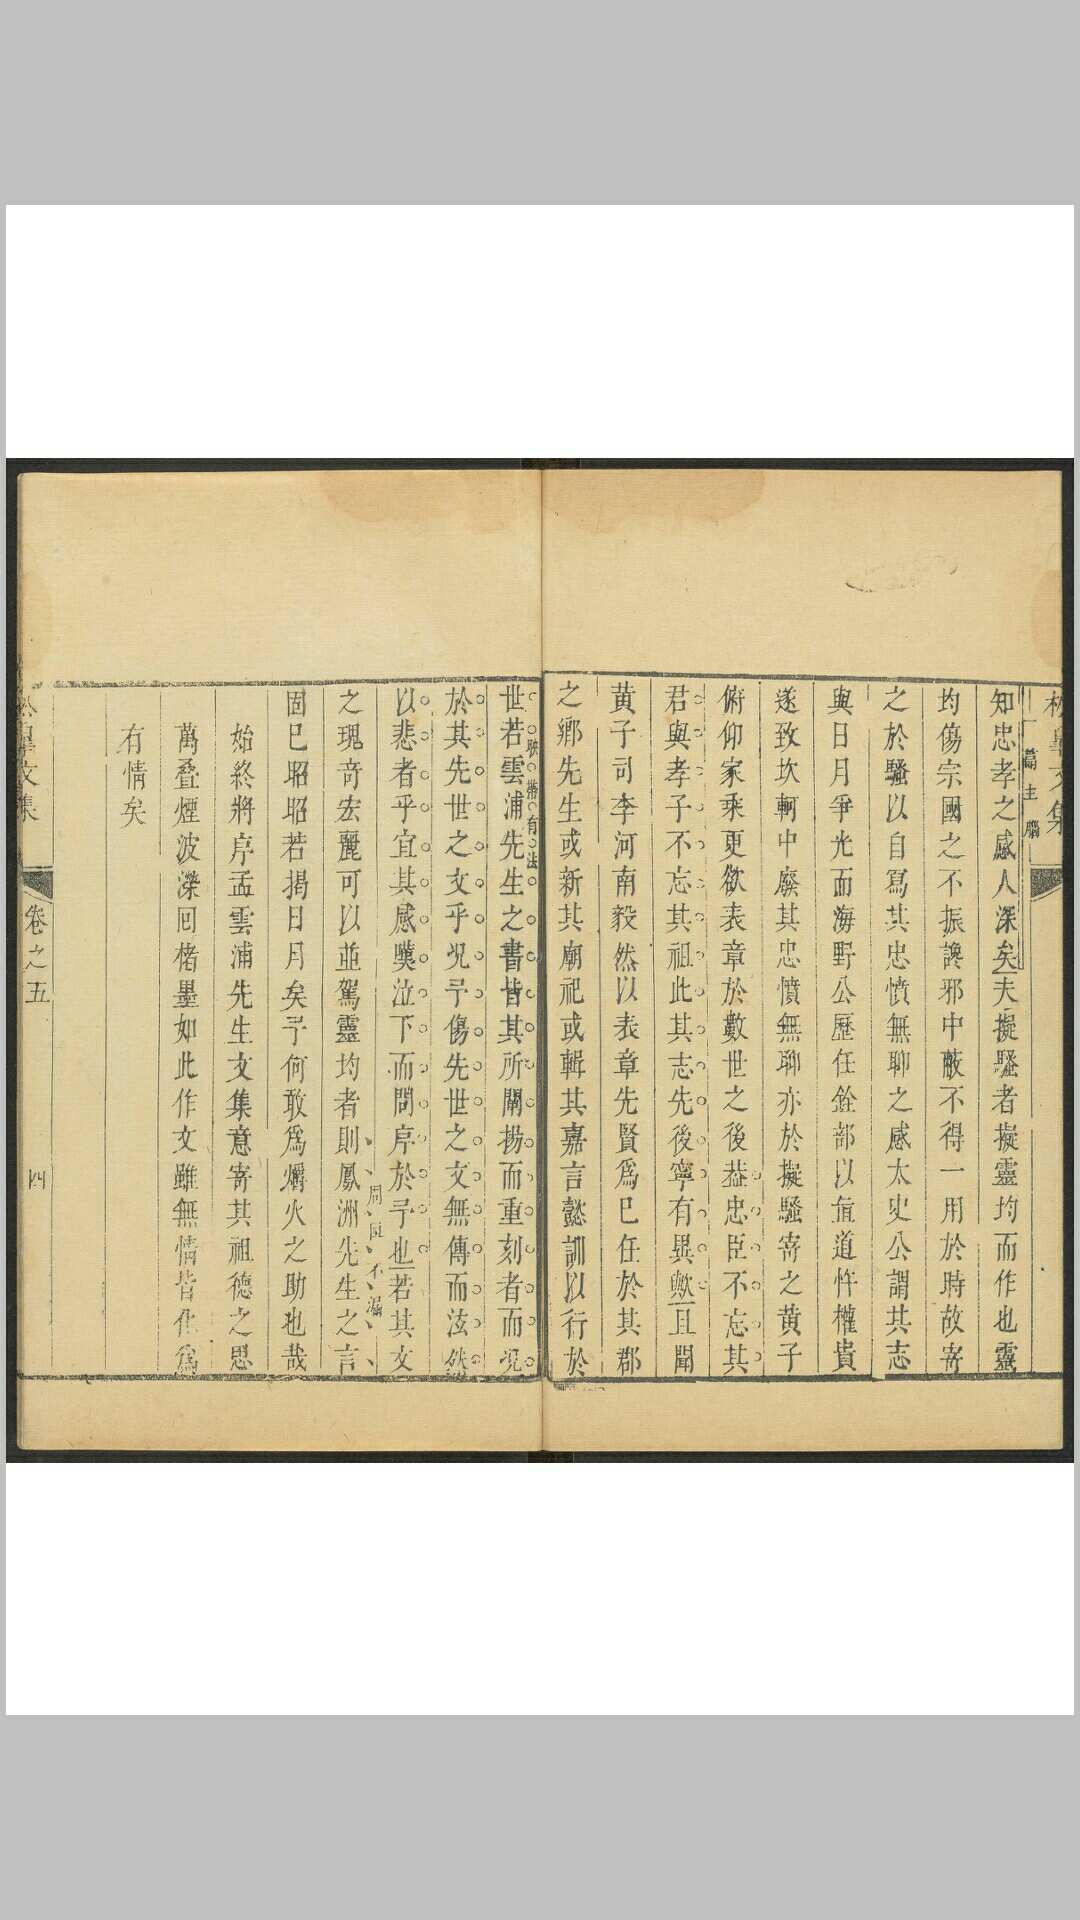 篇主腦
知忠孝之感人深矣夫擬騷者擬靈均而作也靈
均傷宗國之不振讒邪中蔽不得一用於時故寄
之於騷以自寫其忠憤無聊之感太史公謂其志
與日月爭光而海野公歷任銓部以直道忤權貴
遂致坎軻中廢其忠憤無聊亦於擬騷寄之黃子
俯仰家乘更欲表章於數世之後葢忠臣不忘其
君與孝子不忘其祖此其志先後寧有異歟且聞
黃子司李河南毅然以表章先賢爲巳任於其郡
之鄉先生或新其廟祀或輯其嘉言懿訓以行於
世若雲浦先生之書皆其所闡揚而重刻者而况
映帶有法
於其先世之文乎况予傷先世之文無傳而泫然
以悲者乎宜其感嘆泣下而問序於予也若其文
周匝不漏
之瑰奇宏麗可以並駕靈均者則鳳洲先生之言
固巳昭昭若揭日月矣予何敢爲爝火之助也哉
始終將序孟雲浦先生文集意寄其祖德之思
萬叠煙波濚囘楮墨如此作文雖無情皆化爲
有情矣
文集
卷之五
四